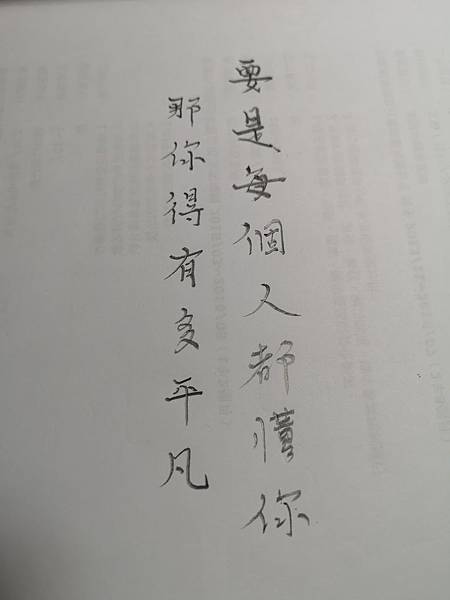 要是每個人都懂你
那你得有多平凡